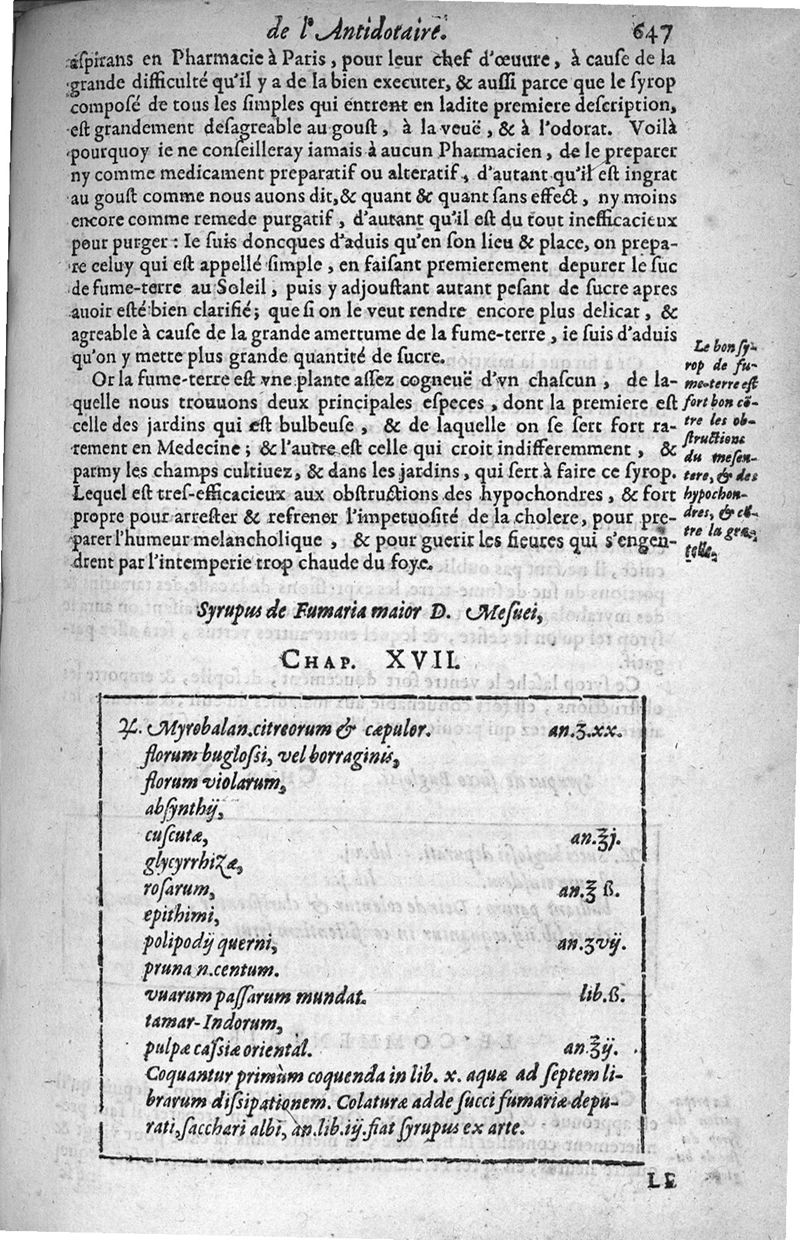 de l'Antidotaire. 647
aſpirans en Pharmacie à Paris, pour leur chef d'œuure, à cauſe de la
grande difficulté qu'il y a de la bien executer, & auſſi parce que le ſyrop
compoſé de tous les ſimples qui entrent en ladite premiere deſcription,
eſt grandement deſagreable au gouſt, à la veuë, & à l'odorat. Voilà
pourquoy ie ne conſeilleray iamais à aucun Pharmacien, de le preparer
ny comme medicament preparatif ou alteratif, d'autant qu'il eſt ingrat
au gouſt comme nous auons dit, & quant & quant ſans effect, ny moins
encore comme remede purgatif, d'autant qu'il eſt du tout inefficacieux
pour purger: Ie ſuis doncques d'aduis qu'en ſon lieu & place, on prepa-
re celuy qui eſt appellé ſimple, en faiſant premierement depurer le ſuc
de fume-terre au Soleil, puis y adjouſtant autant peſant de ſucre apres
auoir eſté bien clarifié; que ſi on le veut rendre encore plus delicat, &
agreable à cauſe de la grande amertume de la fume-terre, ie ſuis d'aduis
qu'on y mette plus grande quantité de ſucre.
Or la fume-terre eſt vne plante aſſez cogneuë d'vn chaſcun, de la-
quelle nous trouuons deux principales eſpeces, dont la premiere eſt
celle des jardins qui eſt bulbeuſe, & de laquelle on ſe ſert fort ra-
rement en Medecine; & l'autre eſt celle qui croit indifferemment, &
parmy les champs cultiuez, & dans les jardins, qui ſert à faire ce ſyrop.
Lequel eſt tres-efficacieux aux obſtructions des hypochondres, & fort
propre pour arreſter & refrener l'impetuoſité de la cholere, pour pre-
parer l'humeur melancholique, & pour guerir les fieures qui s'engen-
drent par l'intemperie trop chaude du foye.
Le bon ſy-
rop de fu-
me-terre eſt
fort bon cõ-
tre les ob-
ſtructions
du meſen-
tere, & des
hypochon-
dres, & cõ-
tre la gra-
telle.
Syrupus de Fumaria maior D. Meſuei,
CHAP. XVII.
♃. Myrobalan. citreorum & cæpulor. an. ʒ. xx.
florum bugloſſi, vel borraginis,
florum violarum,
abſynthij,
cuſcutæ, an. ℥j.
glycyrrhizæ,
roſarum, an. ℥ ß.
epithimi,
polipodij querni, an. ʒvij.
pruna n. centum.
vuarum paſſarum mundat. lib. ß.
tamar-Indorum,
pulpæ caſſiæ oriental. an. ℥ij.
Coquantur primùm coquenda in lib. x. aquæ ad ſeptem li-
brarum diſſipationem. Colaturæ adde ſucci fumariæ depu-
rati, ſacchari albi, an. lib. iij. fiat ſyrupus ex arte.
LE